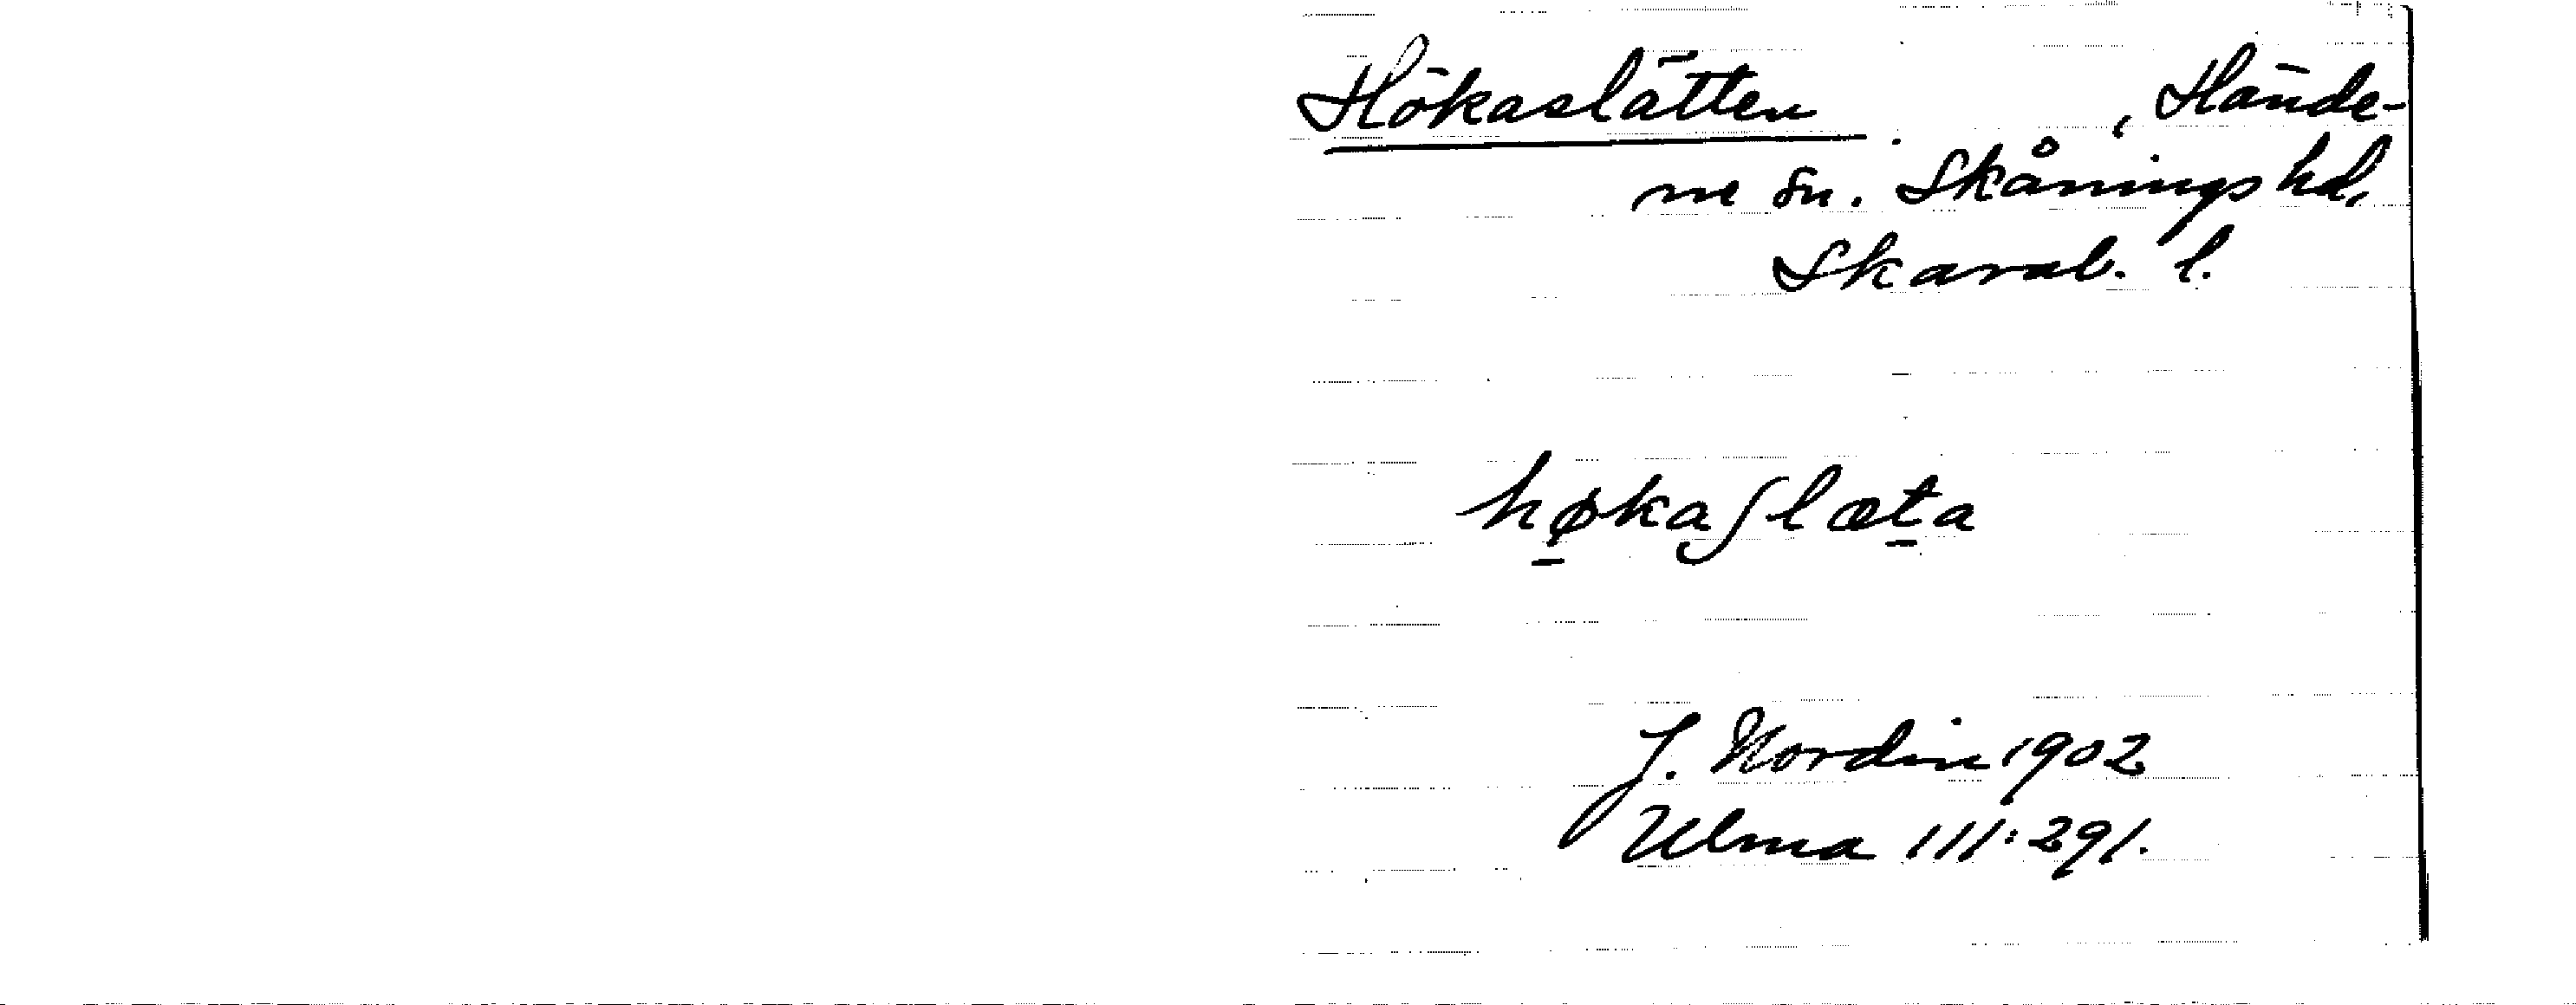 Hökaslätten, Hände-
ne sn. Skånings hd,
Skarab. l.
høkaʃlæta
J. Nordin 1902
Ulma 111:291.